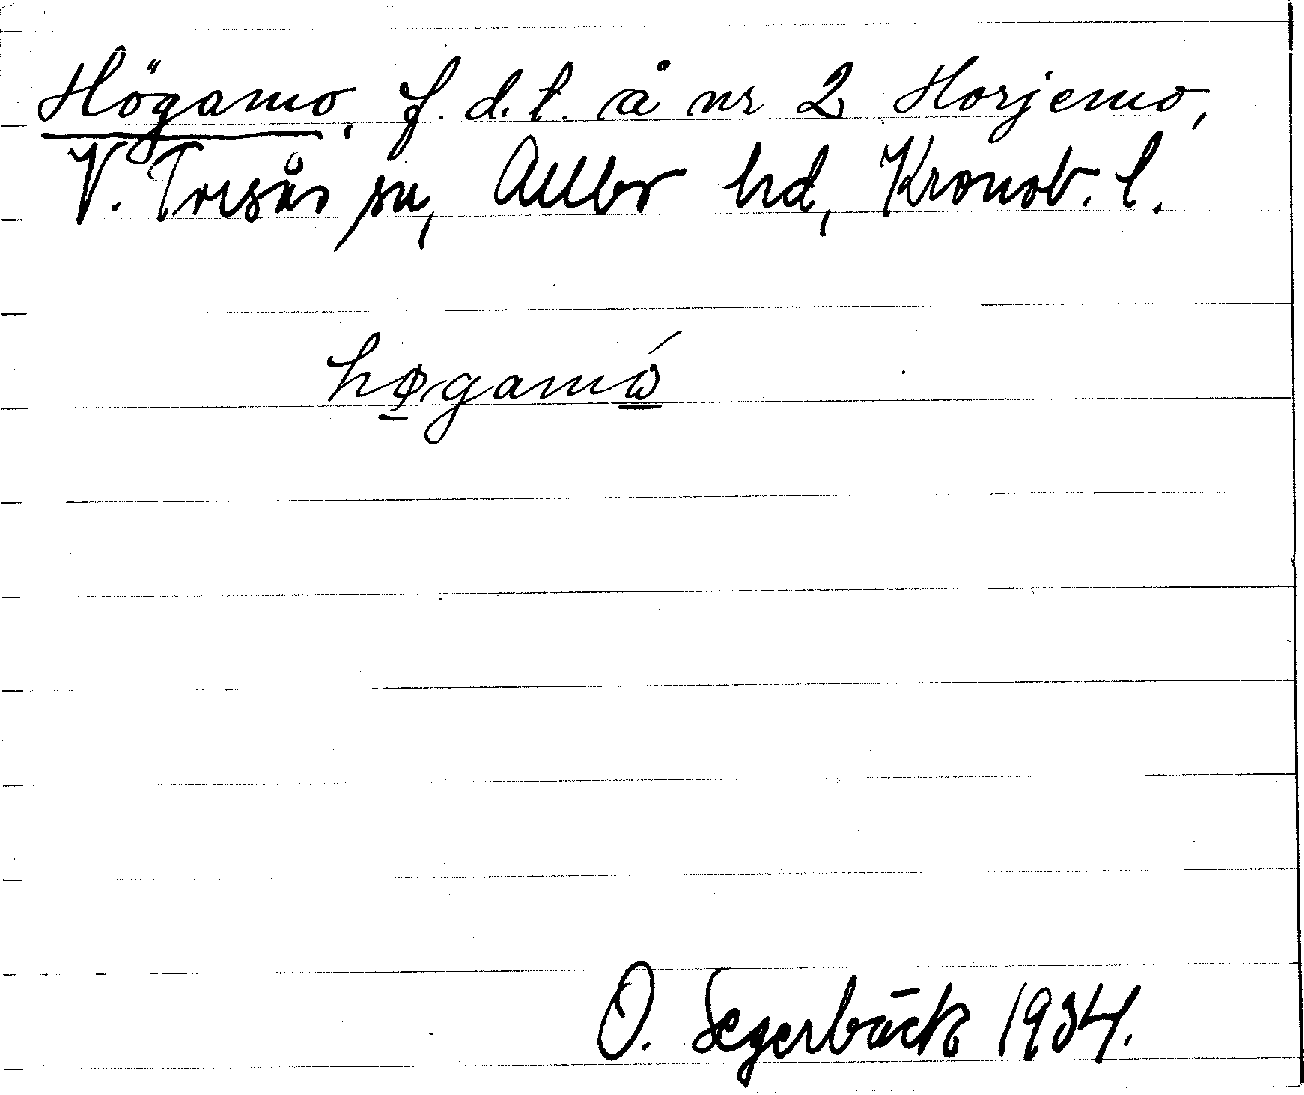 Högamo, f. d. t. å nr 2 Horjemo,
V. Torsås sn, Allbo hd, Kronob. l.
høgamó
O. Segerbäck 1934.